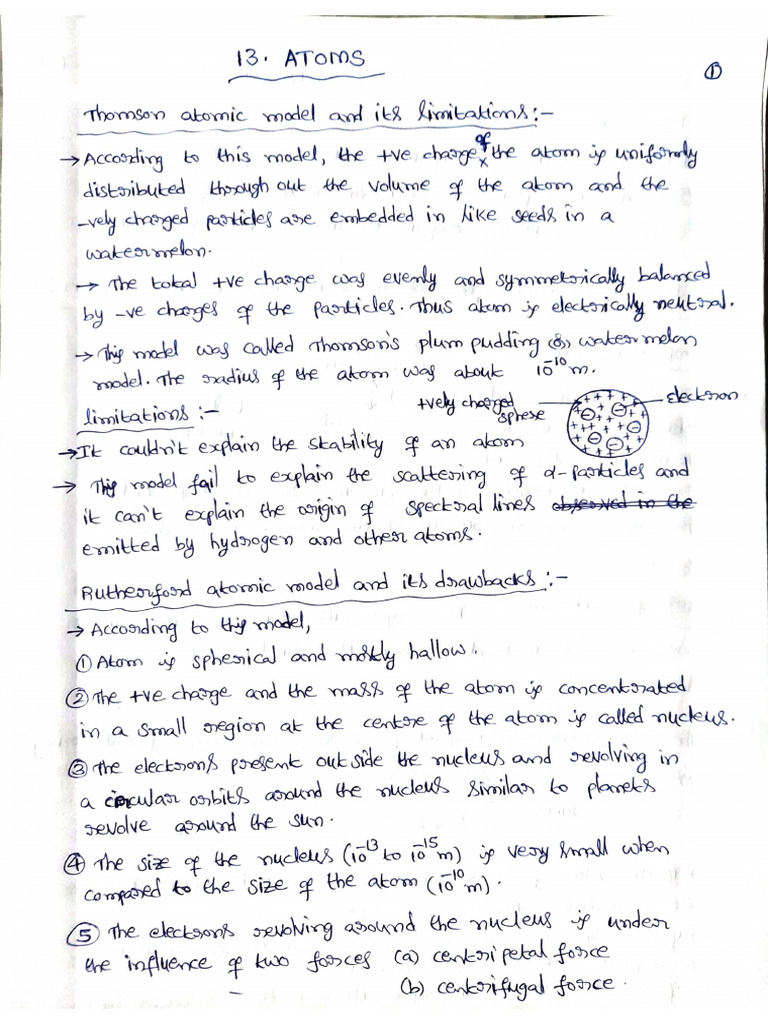 13. ATOMS
①
Thomson atomic model and its limitations:-
→ According to this model, the +ve charge of the atom is uniformly
distributed through out the volume of the atom and the
-vely charged particles are embedded in like seeds in a
watermelon.
→ The total +ve charge was evenly and symmetrically balanced
by -ve charges of the particles. Thus atom is electrically neutral.
→ This model was called Thomson's plum pudding (or) watermelon
model. The radius of the atom was about 10⁻¹⁰ m.
+vely charged sphere
electron
limitations :-
→ It couldn't explain the stability of an atom
→ This model fail to explain the scattering of α-particles and
it can't explain the origin of spectral lines observed in the
emitted by hydrogen and other atoms.
Rutherford atomic model and its drawbacks :-
→ According to this model,
① Atom is spherical and mostly hallow.
② The +ve charge and the mass of the atom is concentrated
in a small region at the centre of the atom is called nucleus.
③ The electrons present out side the nucleus and revolving in
a circular orbits around the nucleus similar to planets
revolve around the sun.
④ The size of the nucleus (10⁻¹³ to 10⁻¹⁵ m) is very small when
compared to the size of the atom (10⁻¹⁰ m).
⑤ The electrons revolving around the nucleus is under
the influence of two forces (a) centripetal force
(b) centrifugal force.